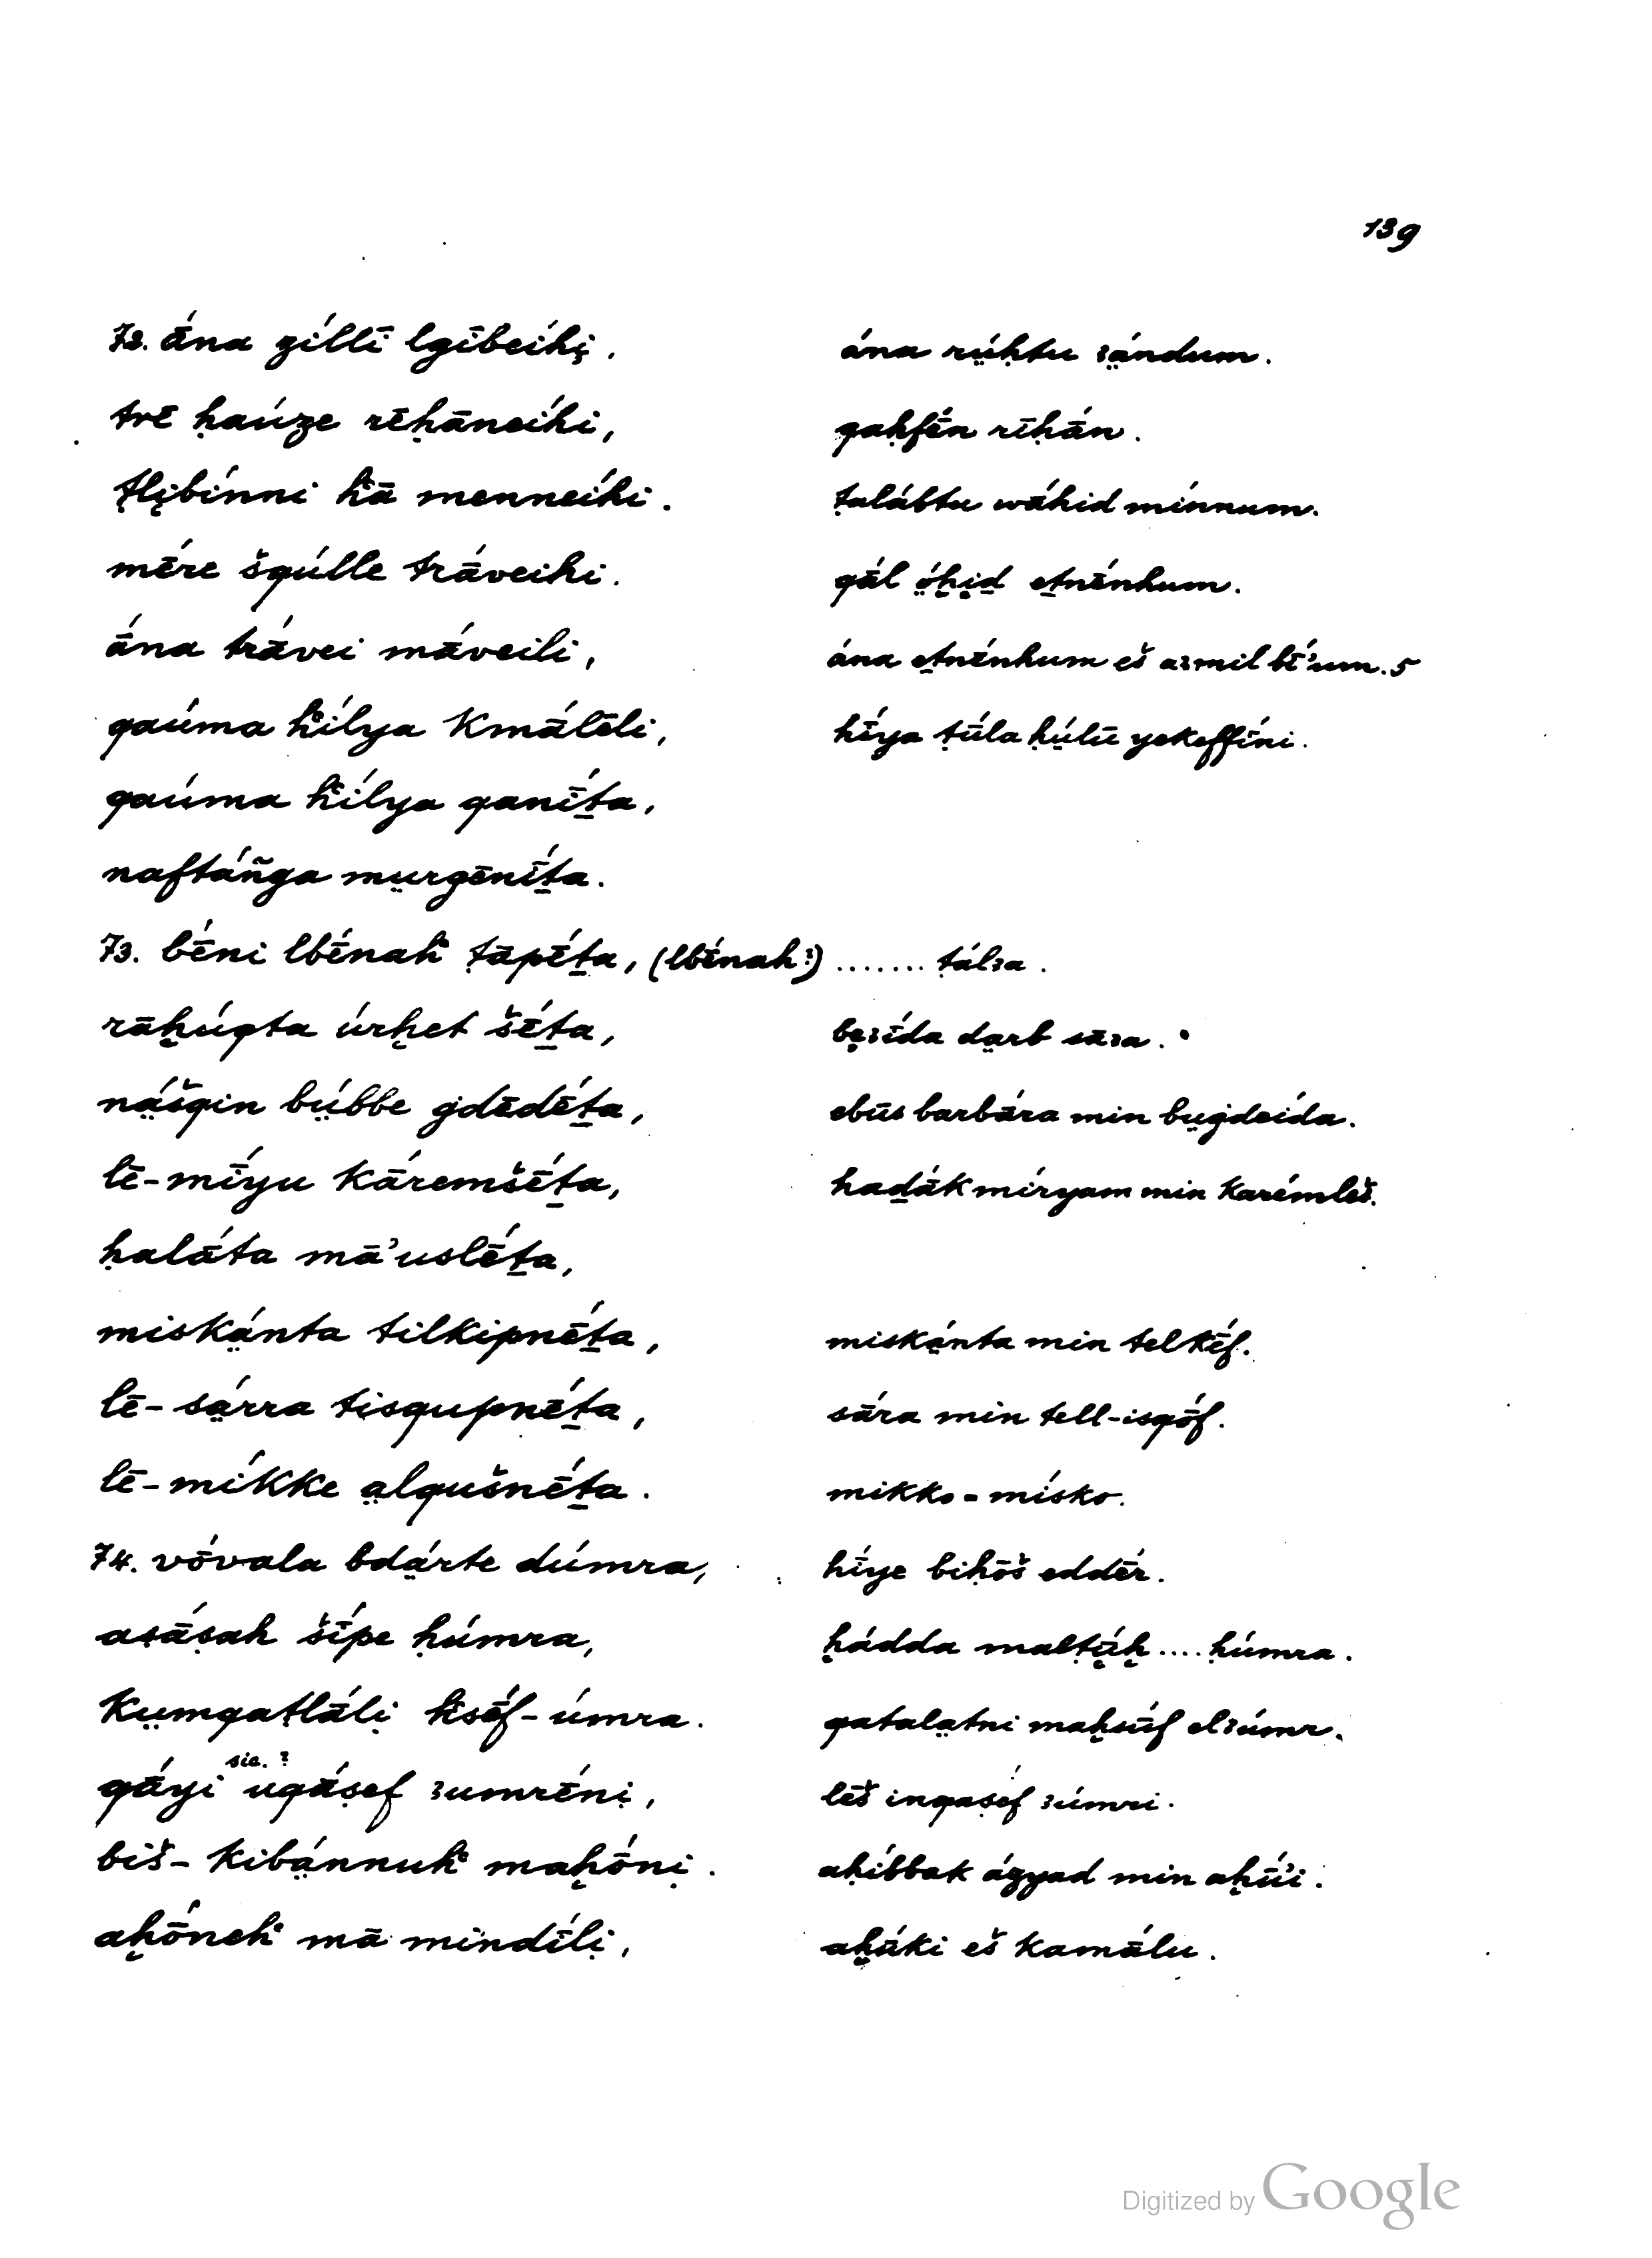 139
72. ā́na zíllī lgībeíhi̤. ána rṳ́ḥtu ʿándum.
trē ḥaúze rēḥāneíhi, qaḥfḗn rīḥā́n.
ṭli̤bínni ḣā menneíhi. ṭalábtu wā́hid mínnum.
mḗre šqúlle trāveihi. qāl ṳ́ḫi̤ḏ eṯnēnhum.
ā́na trā́vei mā́veili, ána eṯnēnhum eš aʿmil bī́'um. 5
qaúma ḣílya kmālēli, hī́ya ṭūla ḥṳ́lū yekeffīni.
qaúma ḣílya qanī́ṯa,
naftáñga mṳrgēnī́ṯa.
73. bḗni lbḗnaḣ ṭāpḗṯa, (lbḗnaḣ?) ....... ṭálʿa.
rāḫúqta úrḫet šḗṯa, be̤ʿī́da da̤rb sāʿa.
nā̤́šqin bṳ́bbe ġdēdḗṯa, ebūs barbāra min bṳġdeída.
lē-mī́yu kāremšḗṯa, haḏák míryam min karémleš.
ḥalā́ta mā'uslḗṯa,
miska̤nta tilkipnḗṯa, miska̤nta min telkēf.
lē-sa̤rra tisqupnḗṯa, sāra min tell-isqōf.
lē-míkke a̤lqušnḗṯa. mikko-mísko.
74. vṓvala bda̤rte dúmra, hī́ye biḥōš eddēr.
aṣā́ṣah šī́pe ḥúmra, ḫádda malṭū́ḫ .... ḥúmra.
kṳmqaṭlā́li̤ ḣsēf-úmra. qatala̤tni maḫsū́f elʿúmr.
qā́yi sic.? uqā́ṣef ʿumrḗni̤, lēš inqaṣéf ʿúmri.
biš-kibánnuḣ maḫṓni̤. aḥíbbak ázyad min aḫū́'i.
aḫṓneḣ mā mindī́li̤, aḫūki eš kamālu.
Digitized by Google